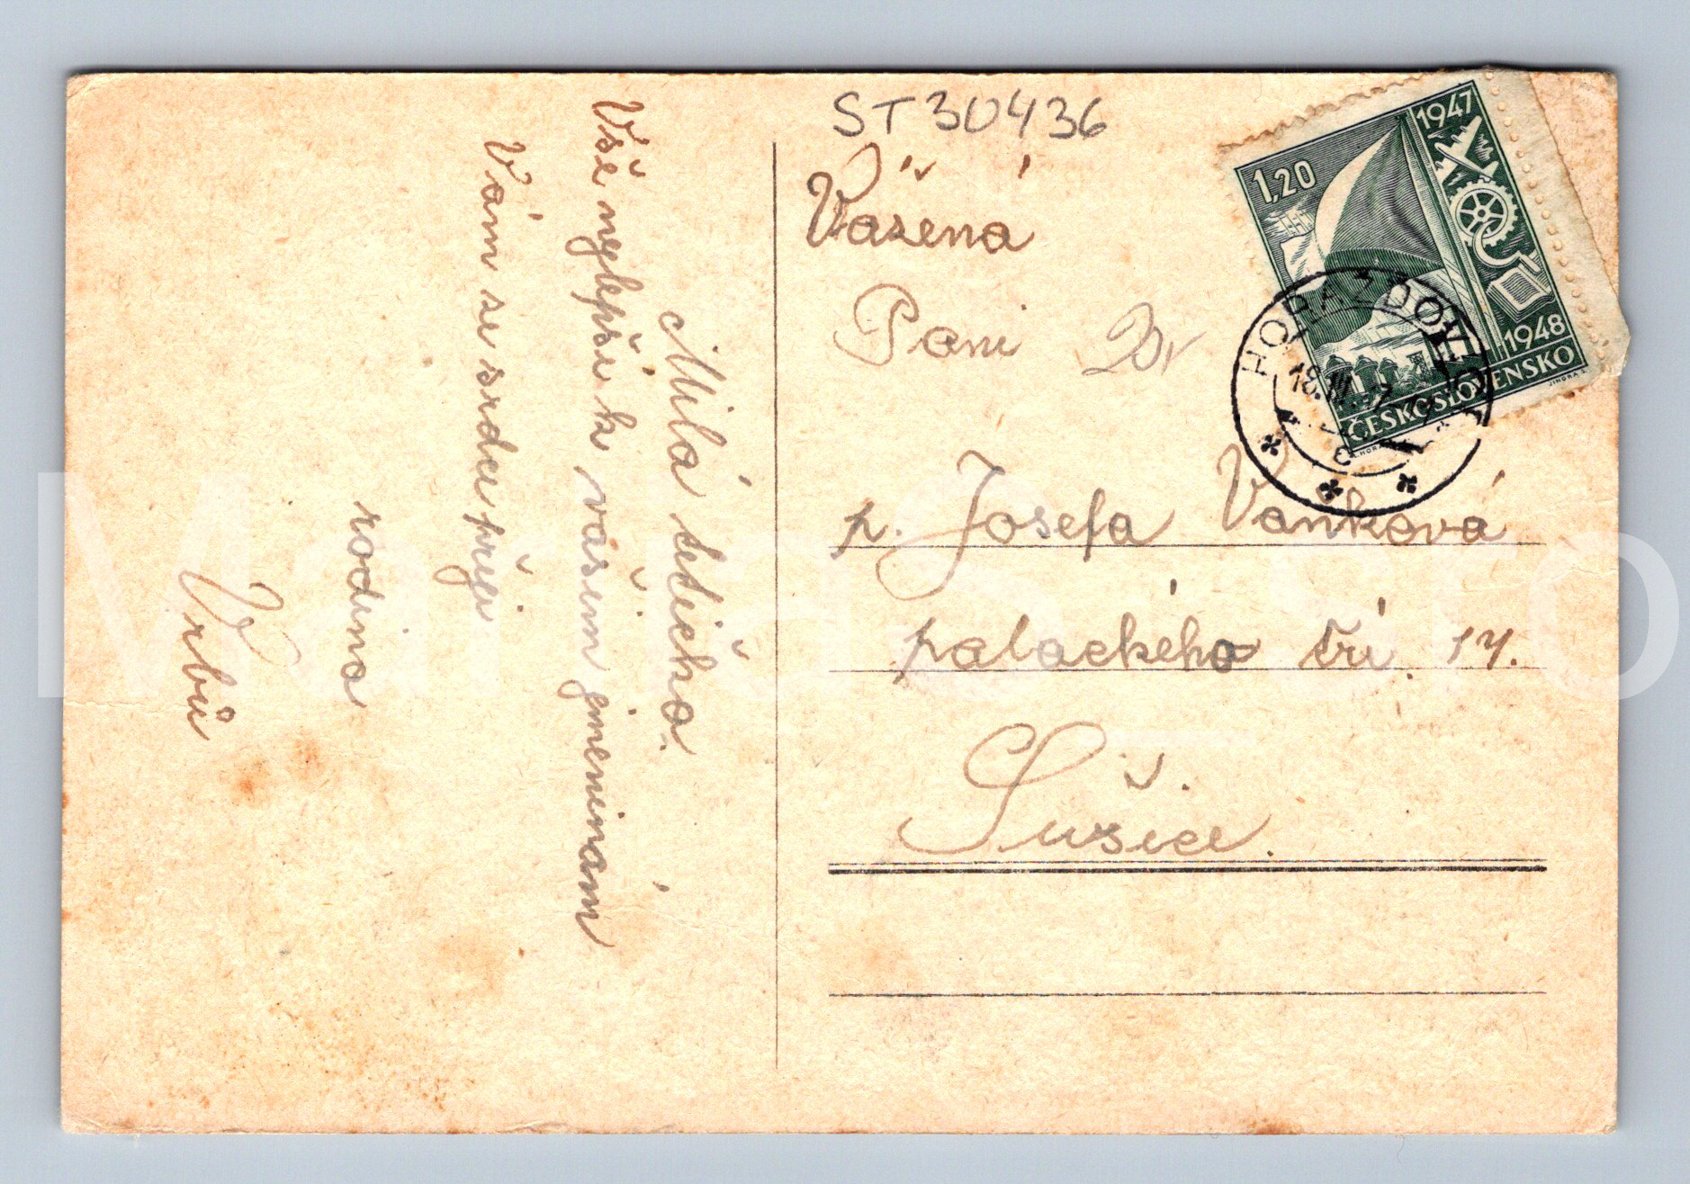 Milá tetičko.
Vše nejlepší k vašim jmeninám
Vám ze srdce přeji
rodina
Vrbů
ST30436
Važená
Paní
p. Josefa Vaňková
palackého tří. 14.
Sušice.
1947
1,20
1948
ČESKOSLOVENSKO
HORAŽĎOVICE